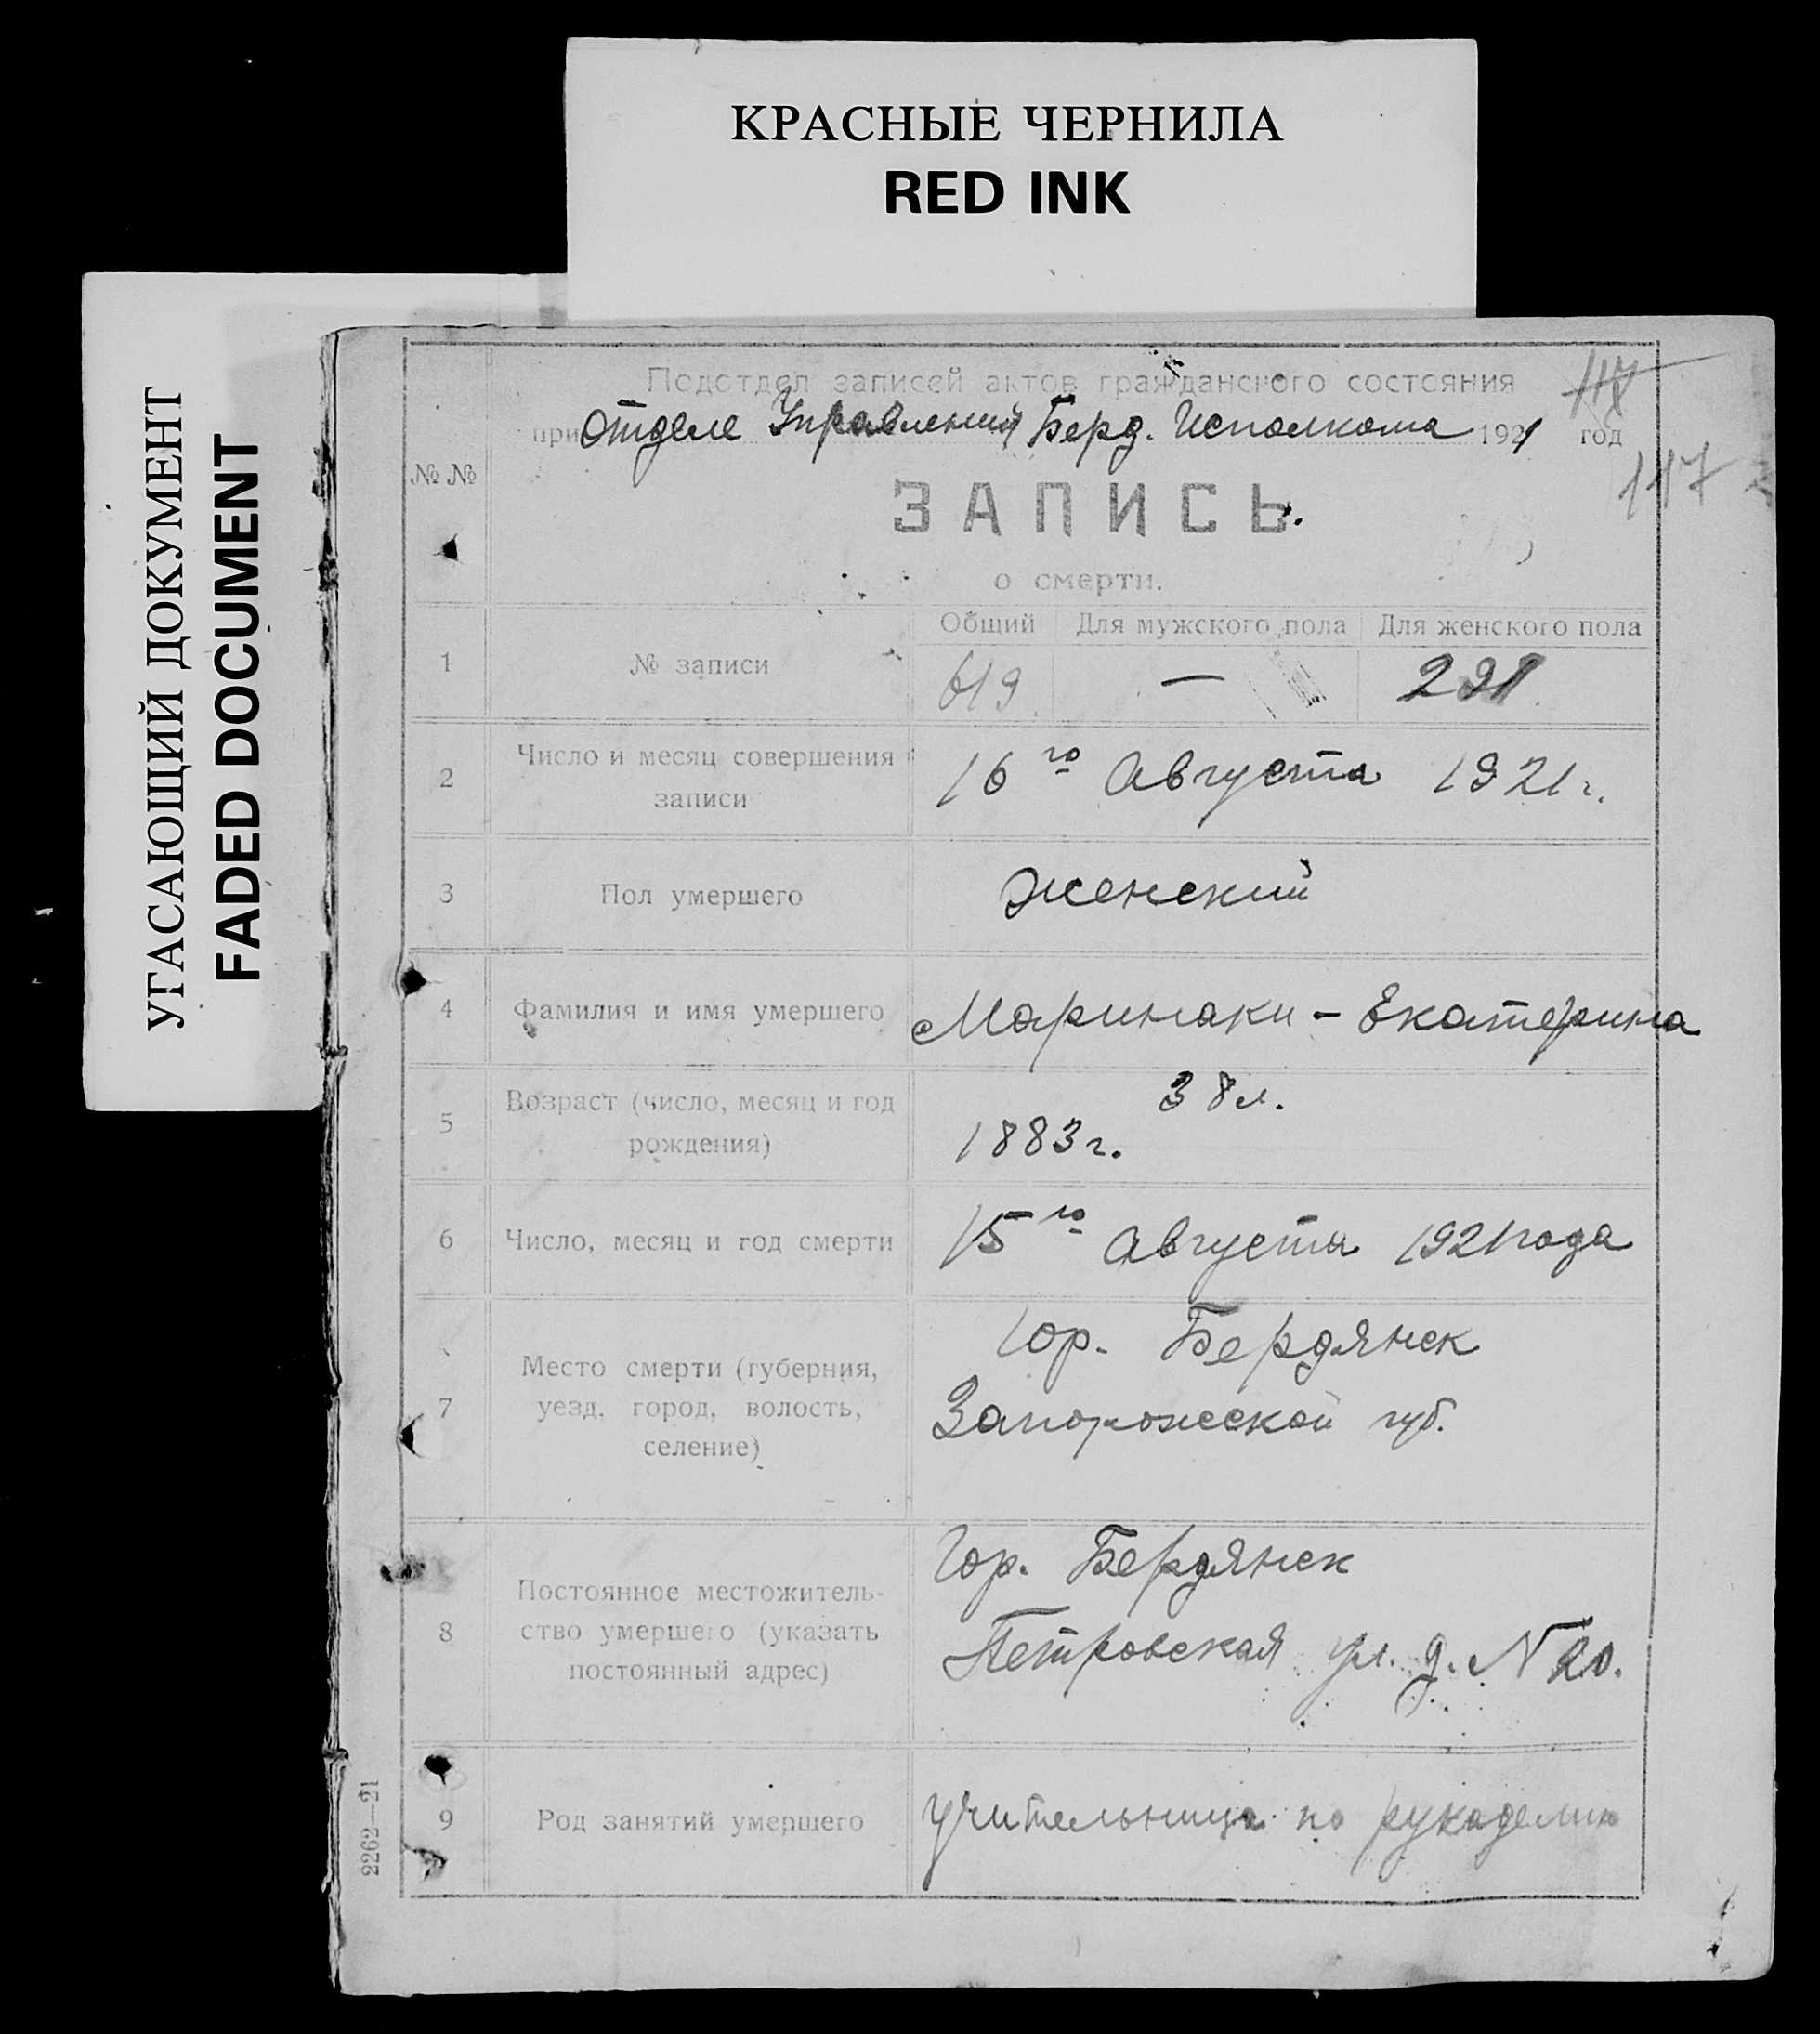 КРАСНЫЕ ЧЕРНИЛА
RED INK
УГАСАЮЩИЙ ДОКУМЕНТ
FADED DOCUMENT
Подотдел записей актов гражданского состояния
при Отделе Управления Берд. Исполкома 1921 год
117
117
№ №
ЗАПИСЬ
о смерти.
Общий Для мужского пола Для женского пола
1 № записи 619 — 291
2 Число и месяц совершения
записи
16го Августа 1921г.
3 Пол умершего Женский
4 Фамилия и имя умершего Маринаки - Екатерина
5 Возраст (число, месяц и год
рождения)
38 л.
1883 г.
6 Число, месяц и год смерти 15го Августа 1921 года
7 Место смерти (губерния,
уезд, город, волость,
селение)
Гор. Бердянск
Запорожской губ.
8 Постоянное местожитель-
ство умершего (указать
постоянный адрес)
Гор. Бердянск
Петровская ул. д. N 20.
9 Род занятий умершего учительница по рукоделию
2262—21